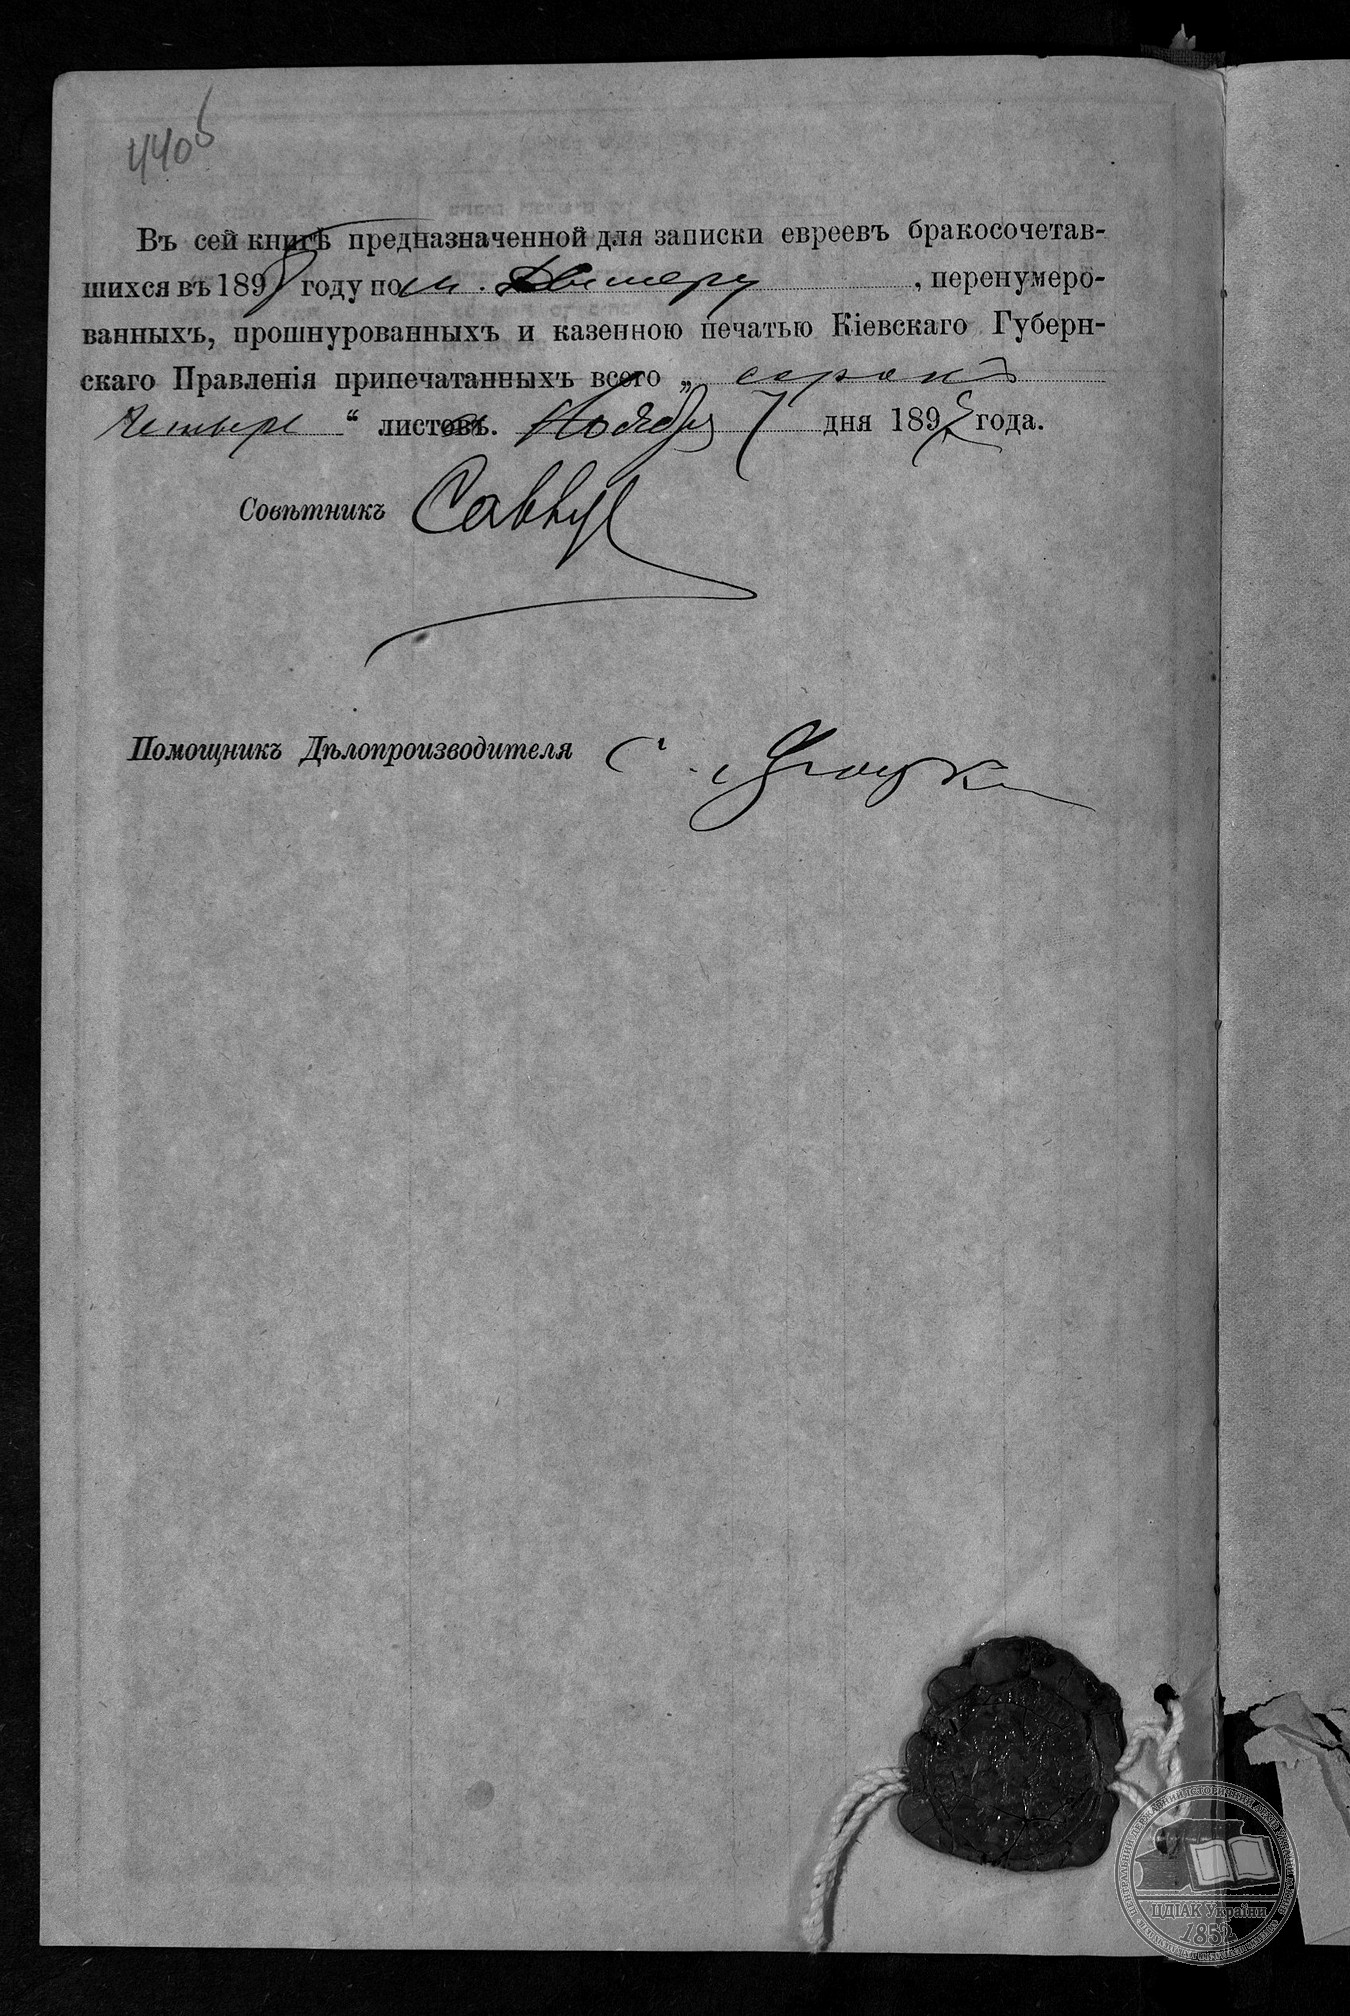 440б
Въ сей книгѣ предназначенной для записки евреевъ бракосочетав-
шихся въ 1898 году по м. Дымеру, перенумеро-
ванныхъ, прошнурованныхъ и казенною печатью Кіевскаго Губерн-
скаго Правленія припечатанныхъ всего „ сорокъ
четыре “ листа. Ноября 7 дня 189 года.
Совѣтникъ
Помощникъ Дѣлопроизводителя С.
ЦДІАК України
1852